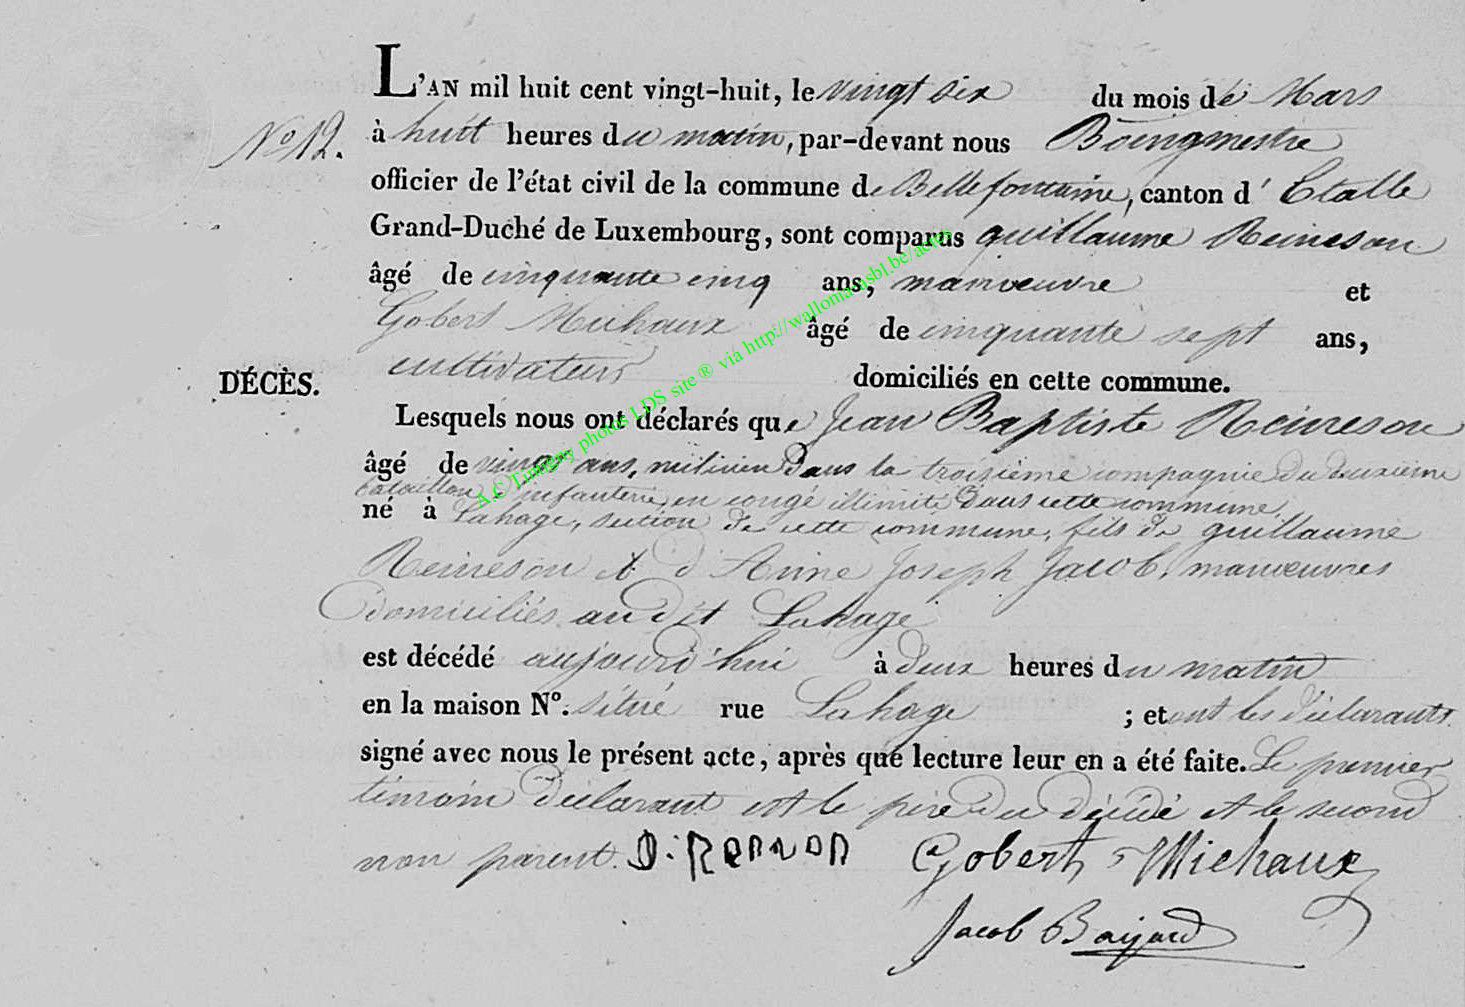 L'AN mil huit cent vingt-huit, le vingt six du mois de Mars
N° 12. à huit heures du matin, par-devant nous Bourgmestre
officier de l'état civil de la commune de Bellefontaine, canton d' Etalle
Grand-Duché de Luxembourg, sont comparus guillaume Reineson
âgé de cinquante cinq ans, manoeuvre et
Gobert Michaux âgé de cinquante sept ans,
DÉCÈS. cultivateurs domiciliés en cette commune.
Lesquels nous ont déclarés que Jean Baptiste Reineson
âgé de vingt ans, milicien dans la troisième compagnie du deuxieme
bataillon d'infanterie, en congé illimité dans cette commune,
né à Lahage, section de cette commune, fils de guillaume
Reineson et d'Anne Joseph Jacob, manoeuvres
domiciliés audit Lahage
est décédé aujourd'hui à deux heures du matin
en la maison N°. située rue Lahage ; et ont les déclarants
signé avec nous le présent acte, après que lecture leur en a été faite. Le premier
témoin déclarant est le père du décédé et le second
non parent. Gobert Michaux
Jacob Baijard
A.C Tintigny photos LDS site ® via http://wallonia-asbl.be/actes